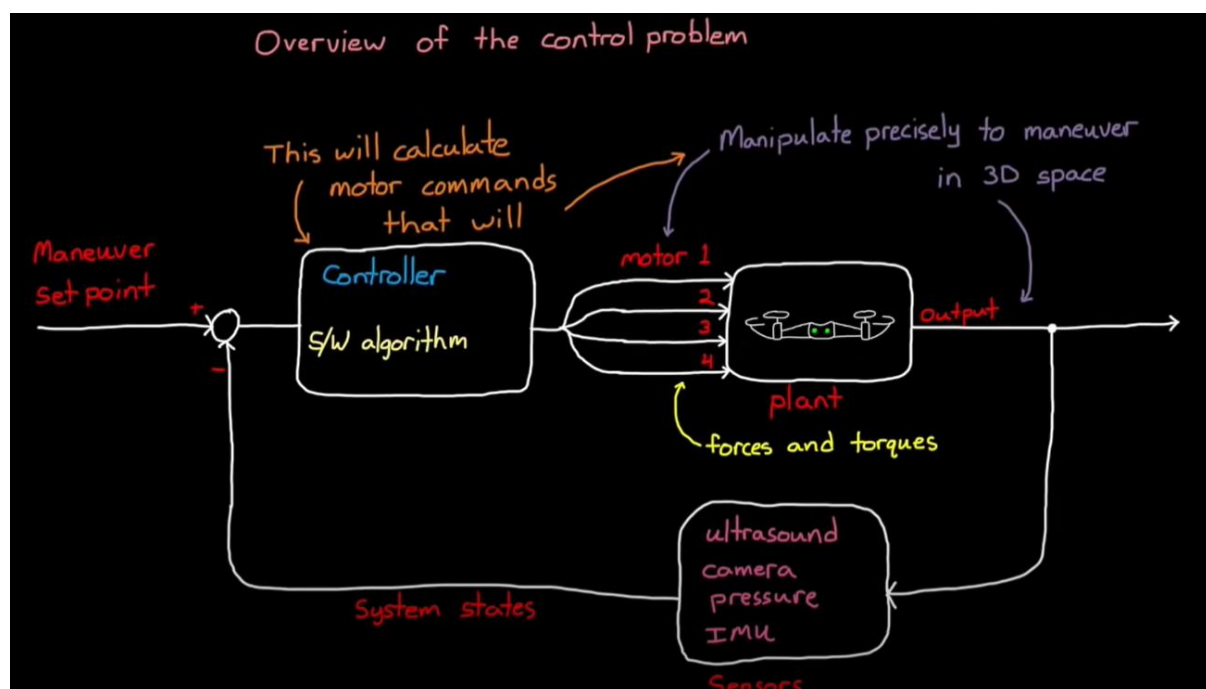 Overview of the control problem
This will calculate
motor commands
that will
Manipulate precisely to maneuver
in 3D space
Maneuver
Set point
+
-
Controller
S/W algorithm
motor 1
2
3
4
plant
output
forces and torques
ultrasound
camera
pressure
IMU
System states
Sensors